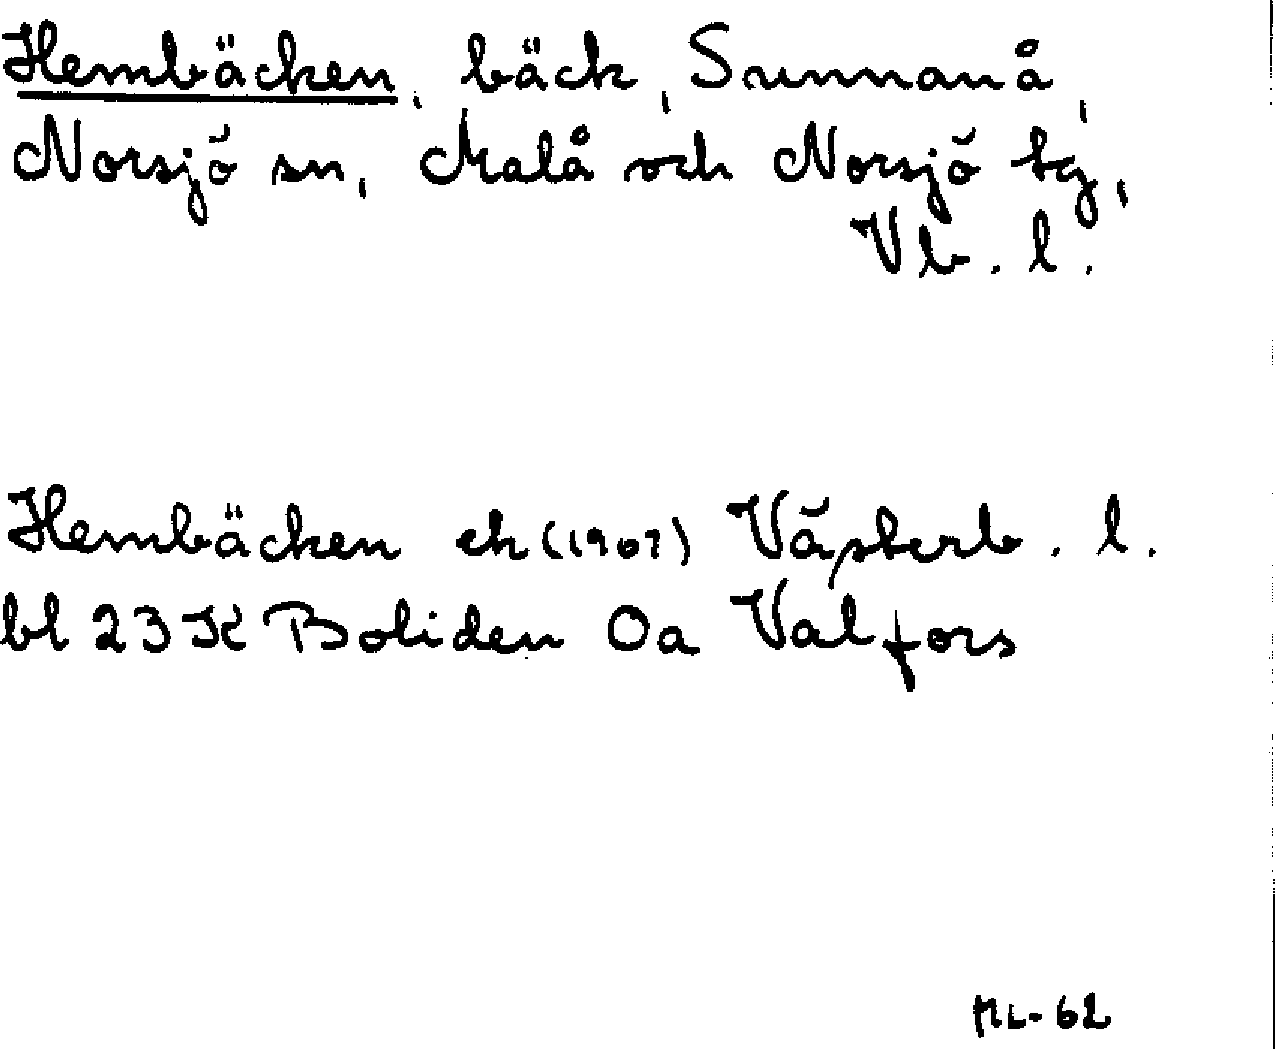 Hembäcken, bäck, Sunnanå,
Norsjö sn, Malå och Norsjö tg,
Vb. l.
Hembäcken ek (1961) Västerb. l.
bl 23 K Boliden 0a Valfors
ML-62